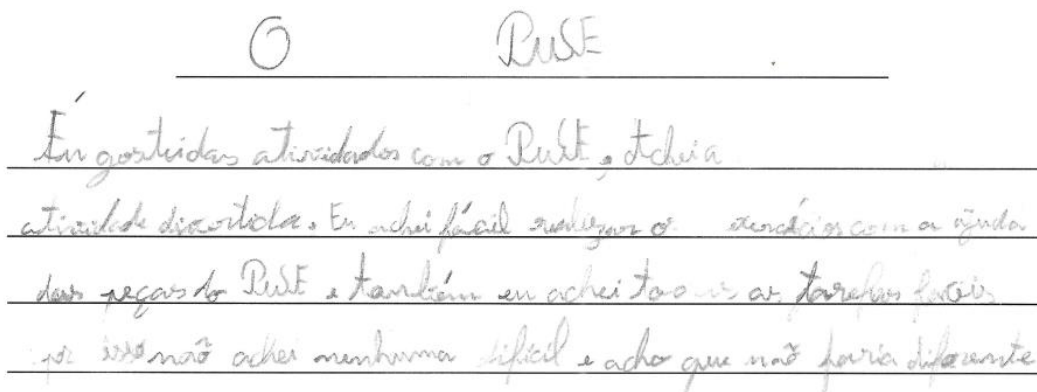 O PUSE
Eu gostei das atividades com o PUSE, Achei a
atividade divertida. Eu achei fácil realizar o exercícios com a ajuda
das peças do PUSE e também eu achei as tarefas fáceis
por isso não achei nenhuma difícil e acho que não faria diferente